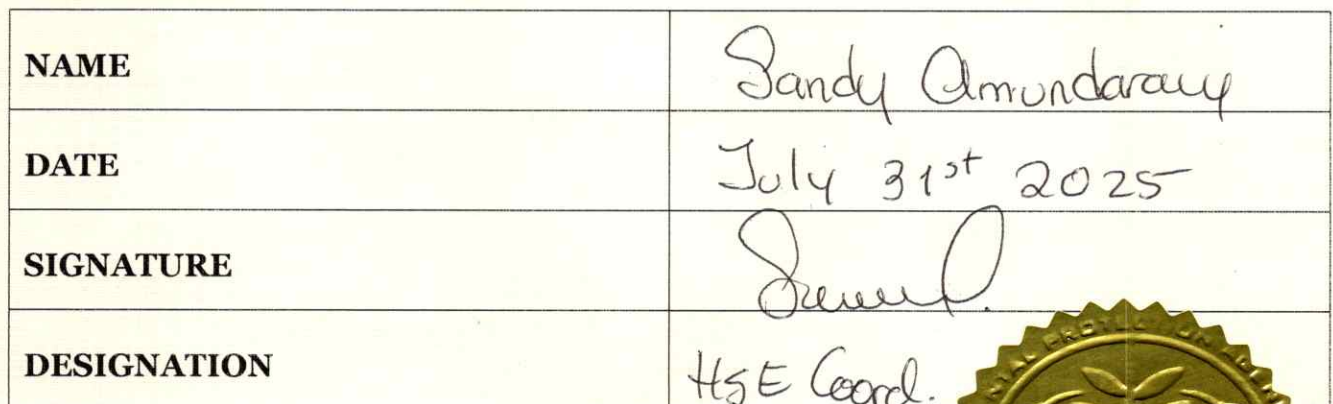 NAME Sandy Amundaray
DATE July 31st 2025
SIGNATURE
DESIGNATION HSE Coord.